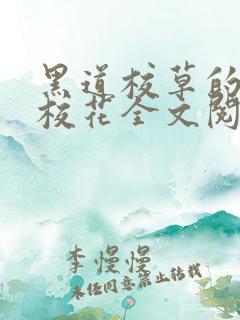 黑道校草的
校花全文阅
李慢慢
未经同意禁止转载